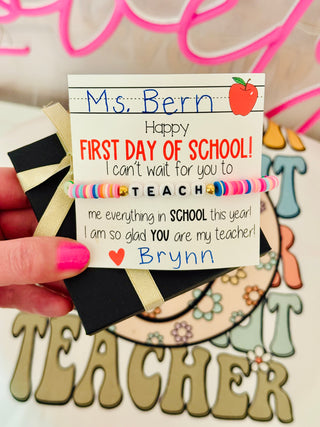 Ms. Bern
Happy
FIRST DAY OF SCHOOL!
I can't wait for you to
TEACH
me everything in SCHOOL this year!
I am so glad YOU are my teacher!
Brynn
TEACHER